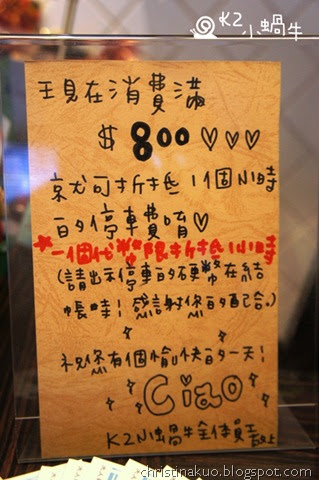 K2小蝸牛
現在消費滿
$800♡♡♡
就可折抵1個小時
的停車費唷♡
*一個代幣限折抵1小時
(請出示停車的硬幣在結
帳時!感謝您的配合。)
祝您有個愉快的一天!
Ciao
K2小蝸牛全体員工上
christinakuo.blogspot.com